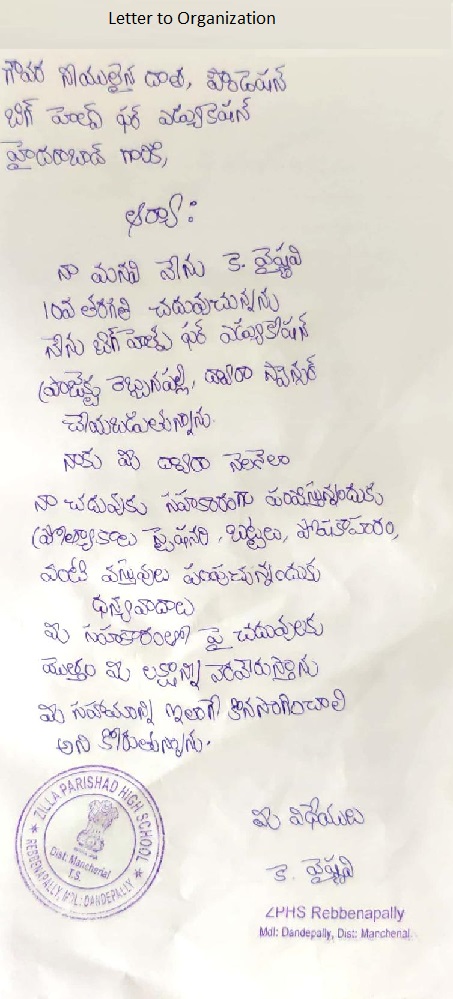 Letter to Organization
గౌరవ నీయులైన దాత, ఫౌండేషన్
బిగ్ హెల్ప్ ఫర్ ఎడ్యుకేషన్
హైదరాబాద్ గారికి,
ఆర్యా:
నా మనవి నేను కె. వైష్ణవి
10వ తరగతి చదువుచున్నను
నేను బిగ్ హెల్ప్ ఫర్ ఎడ్యుకేషన్
ప్రాజెక్టు రెబ్బనపల్లి, ద్వారా స్పాన్సర్
చేయబడుతున్నాను.
నాకు మీ ద్వారా నెలనెలా
నా చదువుకు సహకారంగా పంపిస్తున్నందుకు
స్టేషనరి, బట్టలు, పోషకాహారం,
వంటి వస్తువులు పంపుచున్నందుకు
ధన్యవాదాలు
మీ సహకారంతో పై చదువులకు
మీ లక్ష్యాన్ని నెరవేరుస్తాను
మీ సహాయాన్ని ఇలాగే కొనసాగించాలి
అని కోరుతున్నాను.
మీ విధేయులు
కె. వైష్ణవి
★ ZILLA PARISHAD HIGH SCHOOL ★
REBBENAPALLY, MDL: DANDEPALLY
Dist: Mancherial
T.S.
ZPHS Rebbenapally
Mdl: Dandepally, Dist: Mancherial